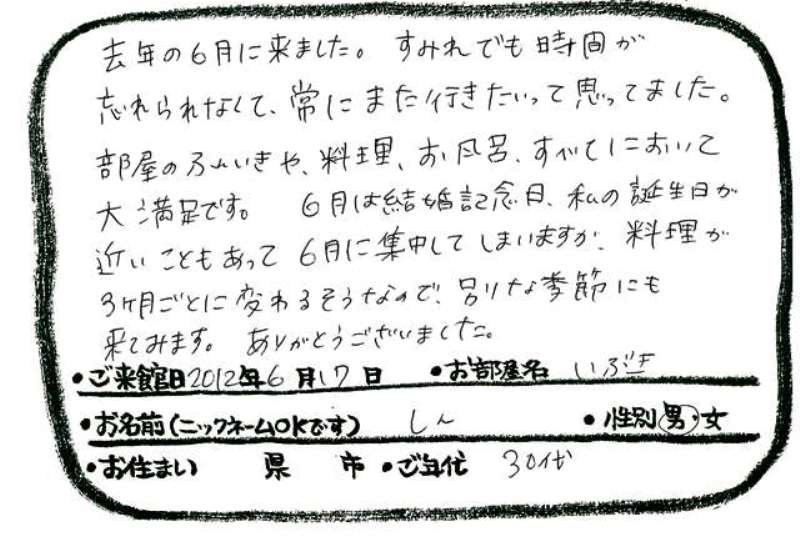 去年の6月に来ました。すみれでも時間が
忘れられなくて、常にまた行きたいって思ってました。
部屋のふんいきや、料理、お風呂、すべてにおいて
大満足です。 6月は結婚記念日、私の誕生日が
近いこともあって6月に集中してしまいますが、料理が
3ヶ月ごとに変わるそうなので、別な季節にも
来てみます。 ありがとうございました。
•ご来館日2012年6月17日 •お部屋名 いぶき
•お名前(ニックネームOKです) しん •性別 男・女
•お住まい 県 市 •ご年代 30代